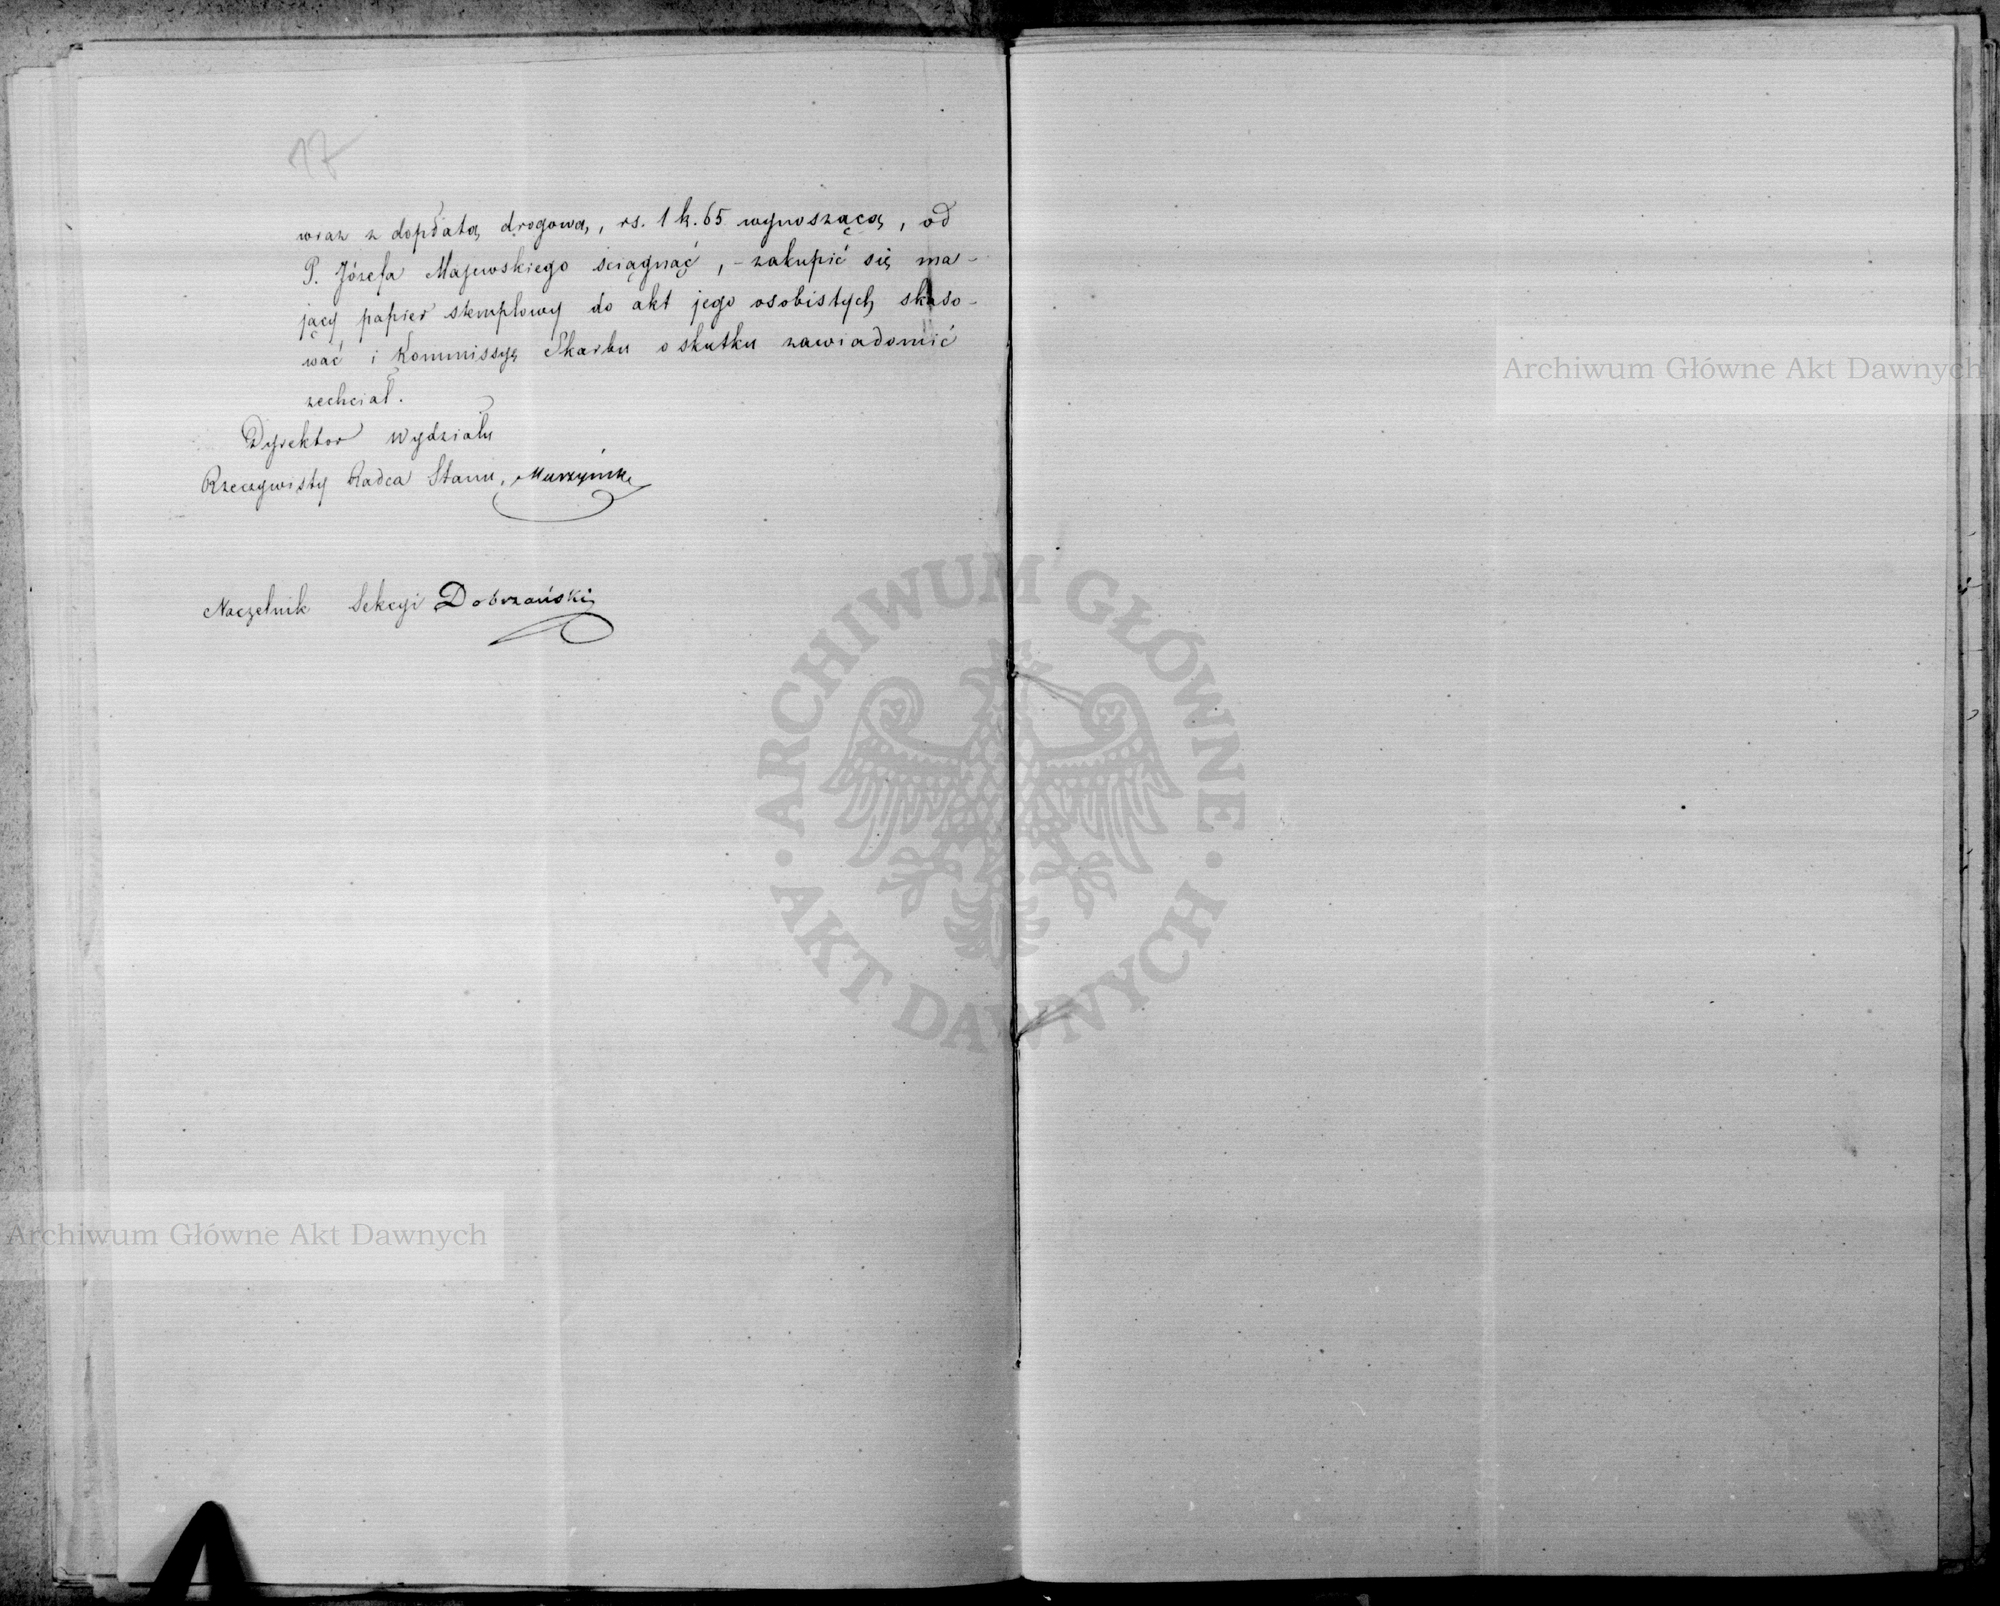 17
wraz z dopłatą drogową, rs. 1 k. 65 wynoszącą, od
P. Józefa Majewskiego ściągnąć, - zakupić się ma-
jący papier stemplowy do akt jego osobistych skaso-
wać i Kommissyę Skarbu o skutku zawiadomić
zechciał.
Dyrektor Wydziału
Rzeczywisty Radca Stanu,
Naczelnik Sekcyi Dobrzański
Archiwum Główne Akt Dawnych
ARCHIWUM GŁÓWNE AKT DAWNYCH
Archiwum Główne Akt Dawnych